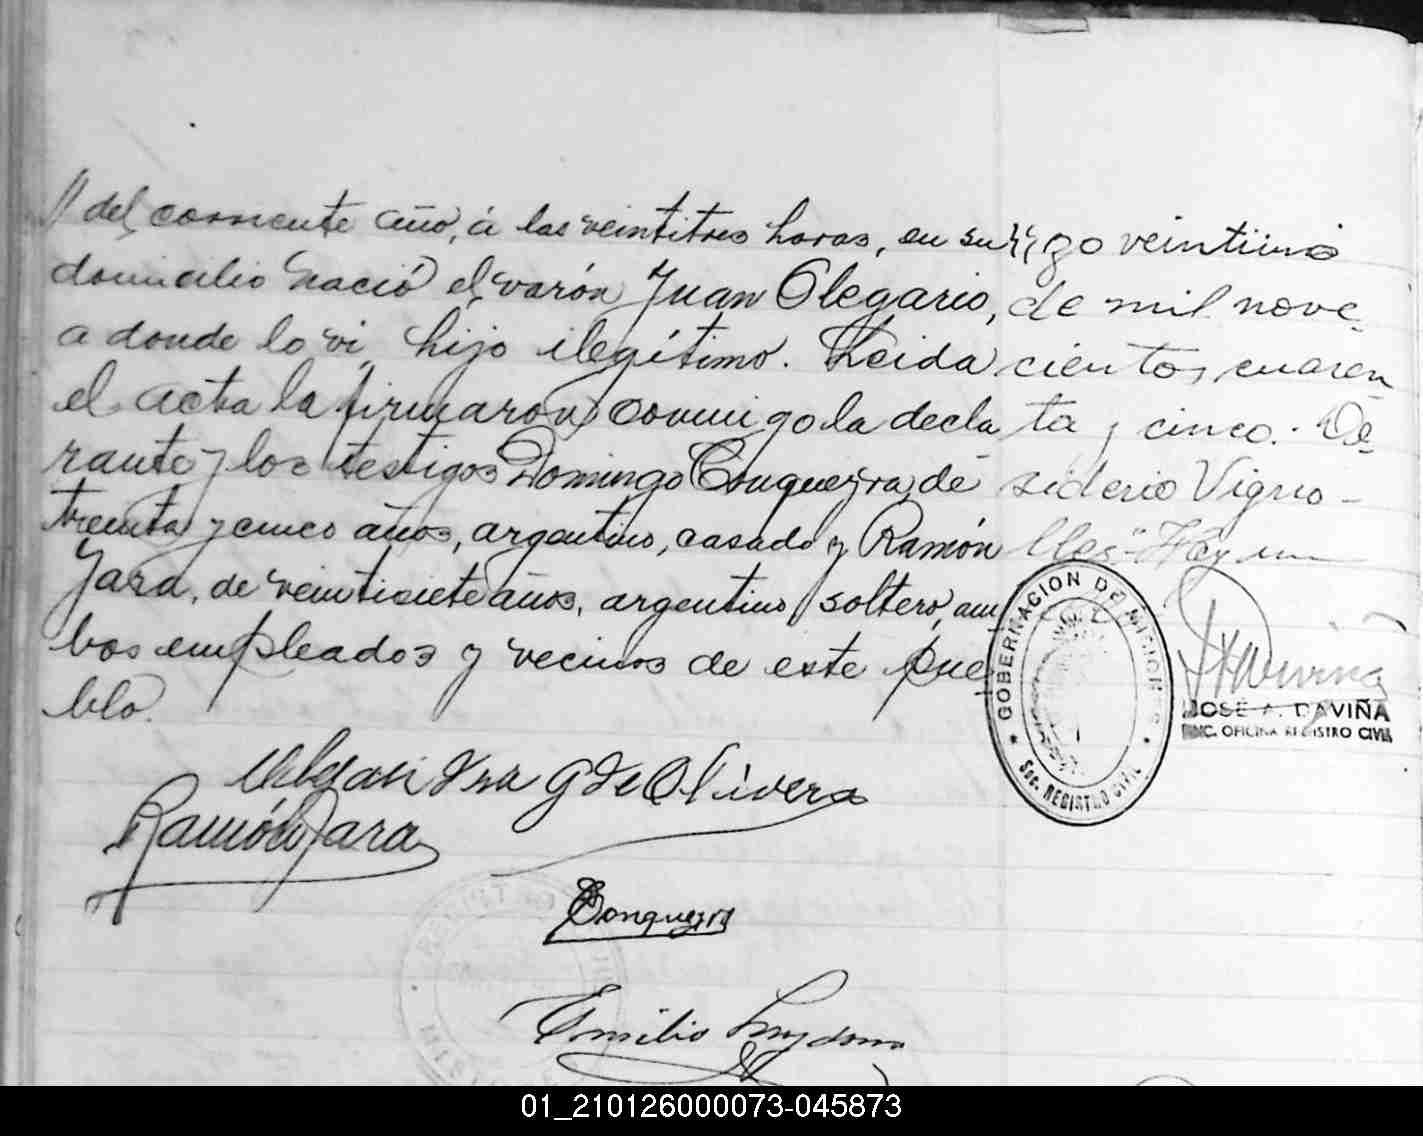 // del corriente año, á las veintitres horas, en su
domicilio nació el varón Juan Olegario,
a donde lo vi, hijo ilegítimo. Leida
el acta la firmaron conmigo la decla
rante y los testigos Domingo Conqueyra, de
treinta y cinco años, argentino, casado y Ramón
Jara, de veintisiete años, argentino, soltero, am
bos empleados y vecinos de este pue
blo.
veintiuno
de mil nove-
cientos cuaren
ta y cinco.- De-
siderio Vigno-
lles"- Hay un
GOBERNACION DE MISIONES
SEC. REGISTRO CIVIL
JOSÉ A. DAVIÑA
ENC. OFICINA REGISTRO CIVIL
G de Olivera
Ramón Jara
Conqueyra
Emilio
01_210126000073-045873